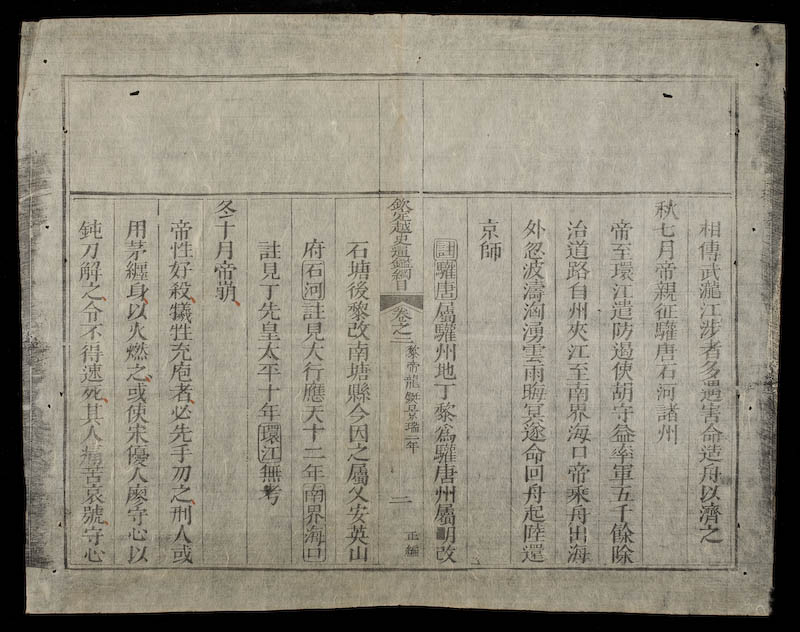 相傳武瀧江涉者多遇害命造舟以濟之
秋七月帝親征驩唐石河諸州
帝至環江遣防遏使胡守益率軍五千餘除
治道路自州夾江至南界海口帝乘舟出海
外忽波濤洶湧雲雨晦冥遂命回舟起陸還
京師
註驩唐屬驩州地丁黎爲驩唐州屬明改
欽定越史通鑑綱目 卷之二 黎帝龍鋌景瑞二年 二 正編
石塘後黎改南塘縣今因之屬乂安英山
府石河註見大行應天十二年南界海口
註見丁先皇太平十年環江無考
冬十月帝崩
帝性好殺犧牲充庖者必先手刃之刑人或
用茅纏身以火燃之或使宋優人廖守心以
鈍刀解之令不得速死其人痛苦哀號守心